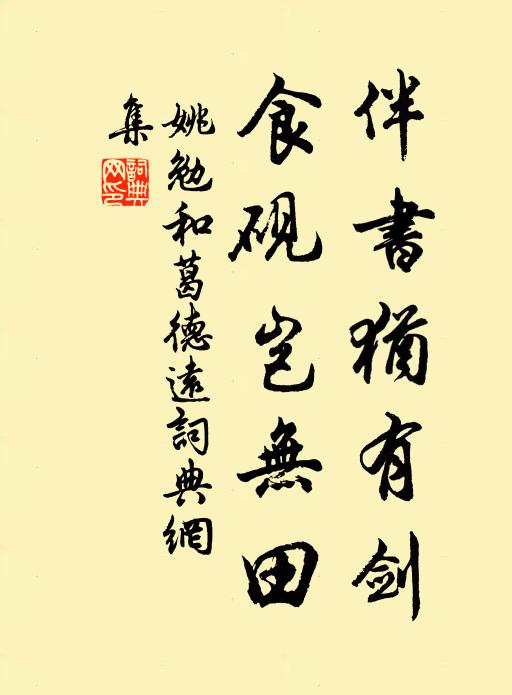 伴書猶有劍
食硯豈無田
姚勉和葛德遠詞典網
集
詞典
网印